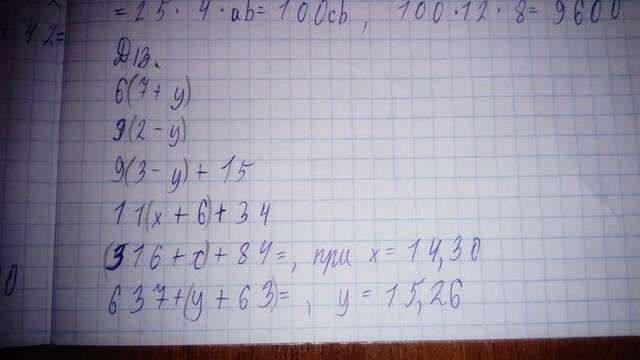 = 25 · 4 · ab = 100cb, 100·12·8 = 9600
42=
Д13.
6(7+y)
9(2-y)
9(3-y)+15
11(x+6)+34
(316+x)+84=, при x=14,30
637+(y+63)=, y=15,26